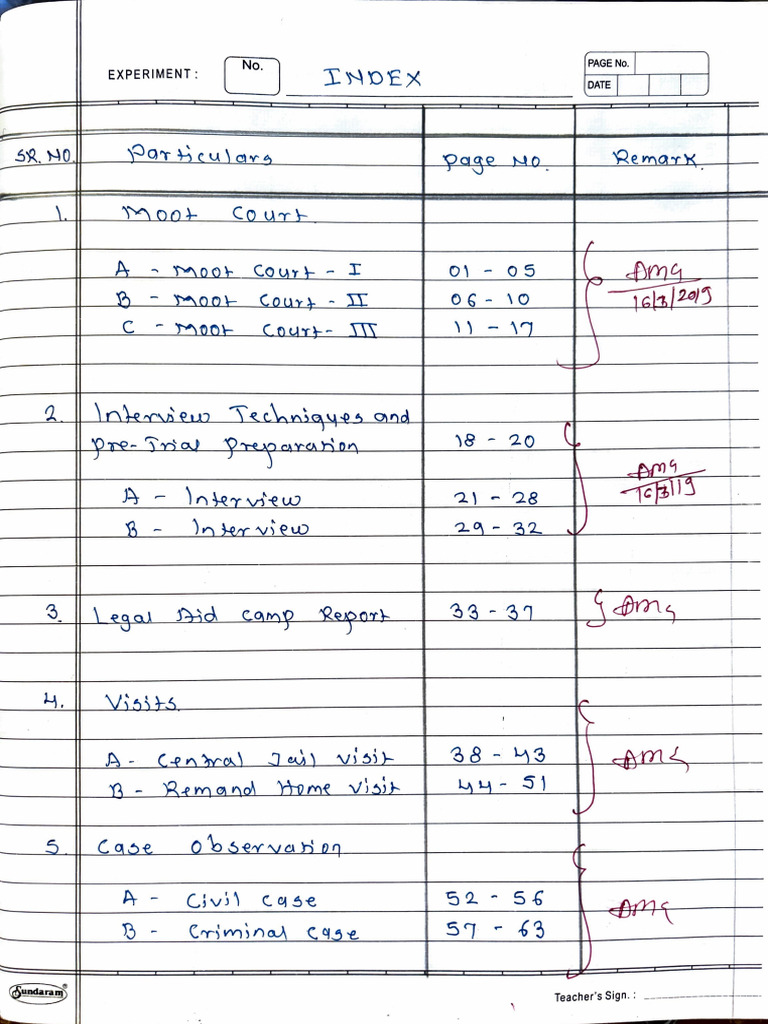 EXPERIMENT : No. INDEX PAGE No.
DATE
SR. NO. Particulars Page No. Remark.
1. Moot Court
A - Moot Court - I 01 - 05
B - Moot Court - II 06 - 10
16/3/2019
C - Moot Court - III 11 - 17
2. Interview Techniques and
Pre-Trial Preparation 18 - 20
A - Interview 21 - 28 16/3/19
B - Interview 29 - 32
3. Legal Aid Camp Report 33 - 37
4. Visits
A - Central Jail visit 38 - 43
B - Remand Home visit 44 - 51
5. Case Observation
A - Civil Case 52 - 56
B - Criminal Case 57 - 63
Sundaram®
Teacher's Sign. :